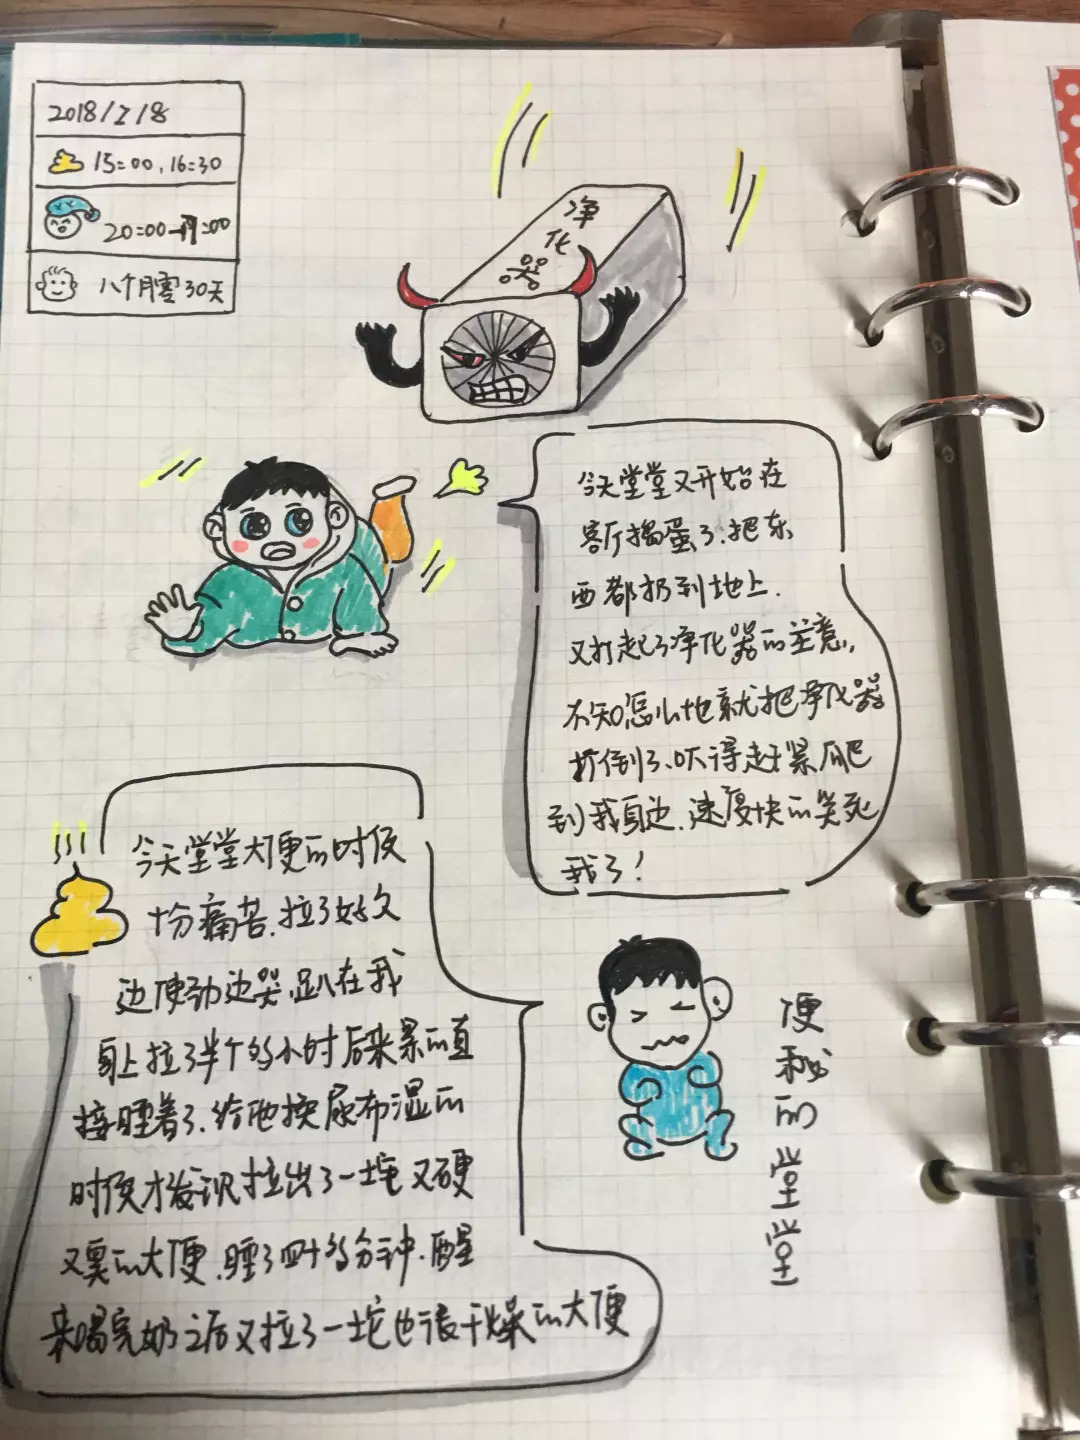 2018/2/18
15:00, 16:30
20:00-
八个月零30天
净化器
今天堂堂又开始在
客厅捣蛋了.把东
西都扔到地上.
又打起了净化器的主意,
不知怎么地就把净化器
打倒了.吓得赶紧爬
到我身边.速度快的笑死
我了!
今天堂堂大便的时候
十分痛苦.拉了好久
边使劲边哭.趴在我
身上拉了半个多小时后来累的直
接睡着了.给他换尿布湿的
时候才发现拉出了一坨又硬
又臭的大便.睡了四十多分钟.醒
来喝完奶之后又拉了一坨也很干燥的大便
便秘的堂堂